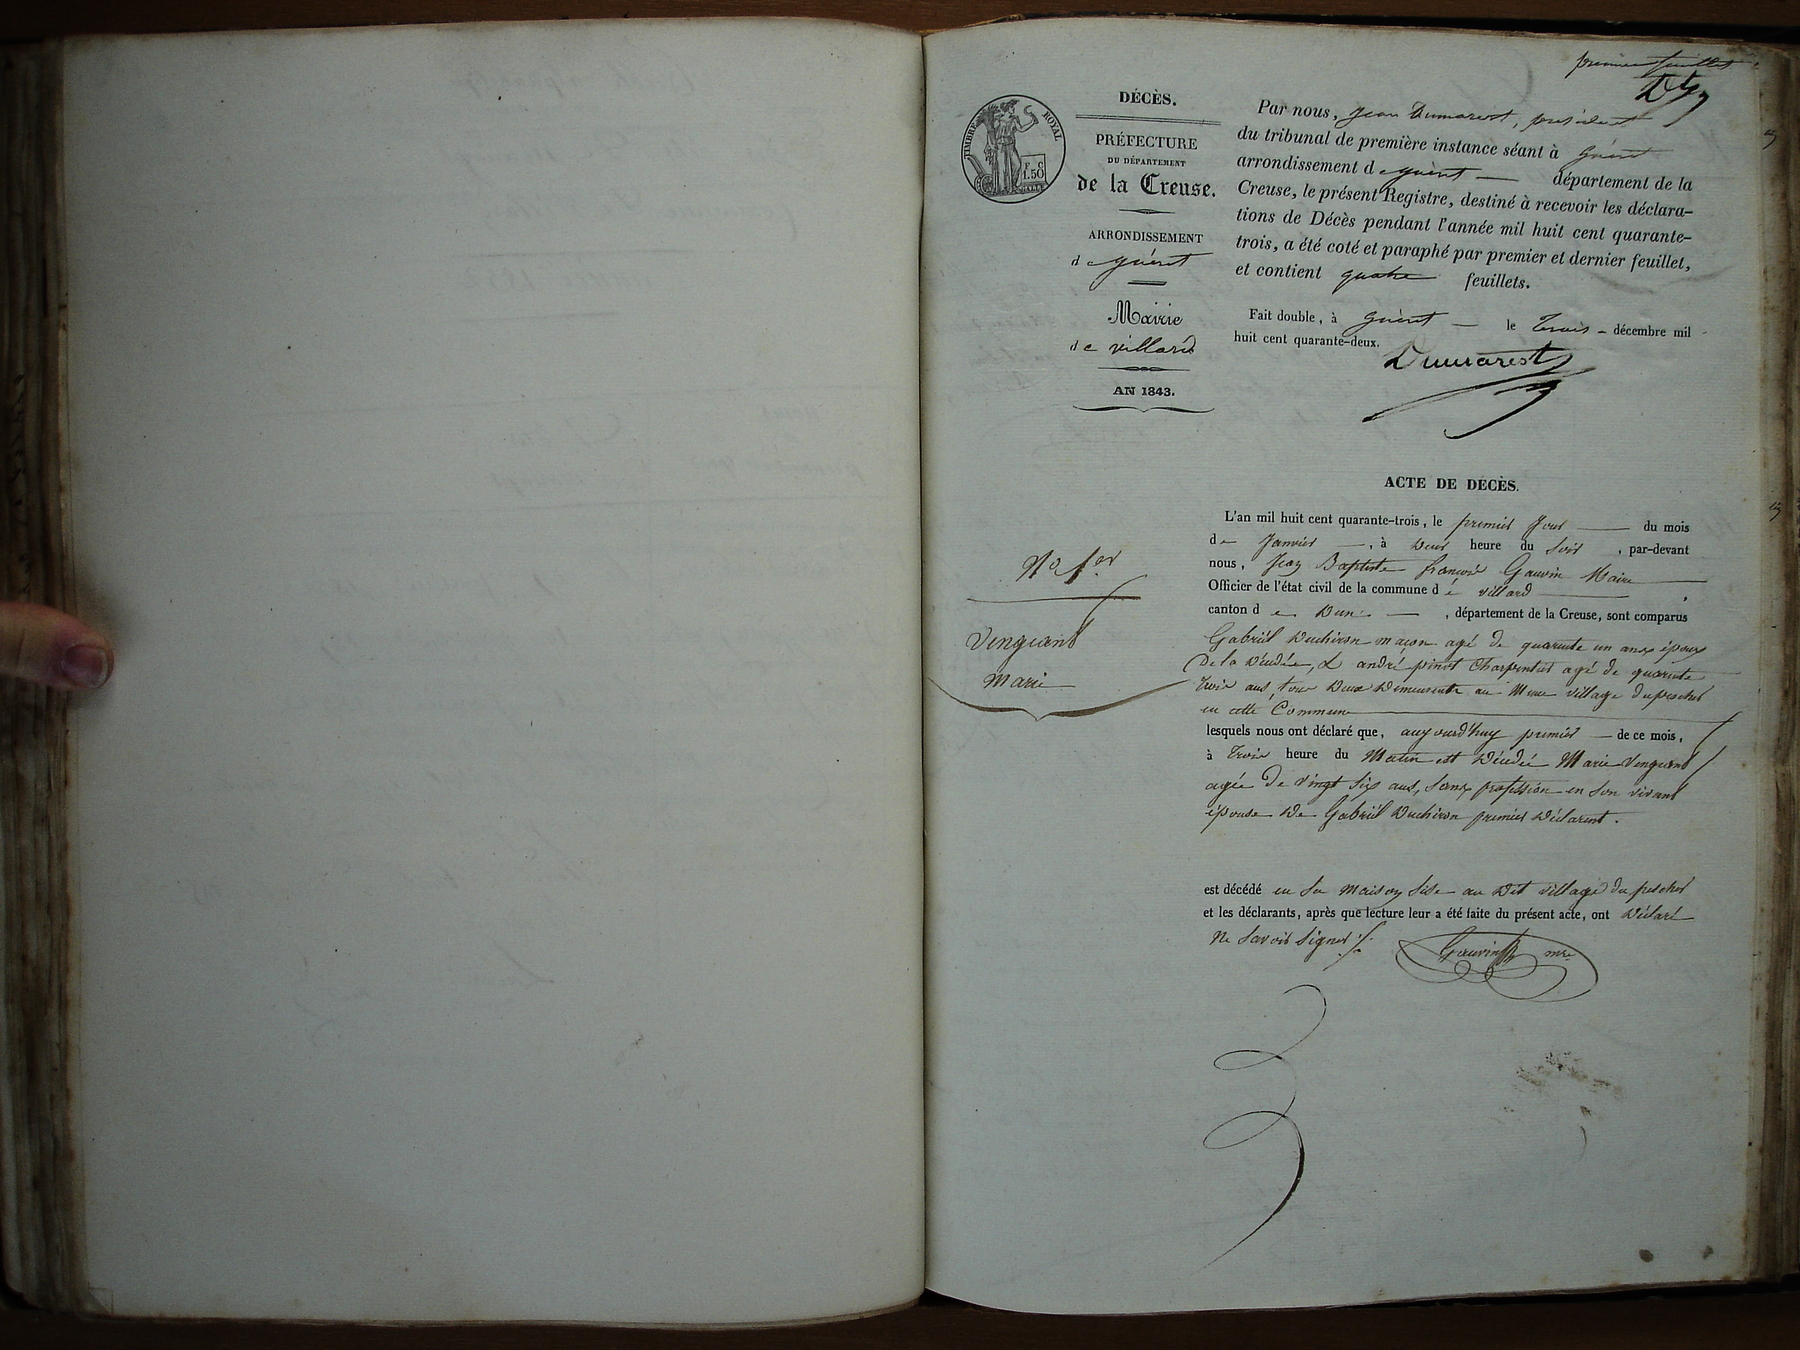 premier feuillet
Dt
TIMBRE ROYAL
F. C
1.50
DÉCÈS.
PRÉFECTURE
DU DÉPARTEMENT
de la Creuse.
ARRONDISSEMENT
de guéret
Mairie
de villard
AN 1843.
Par nous, Jean Dumarest, président
du tribunal de première instance séant à guéret
arrondissement de guéret département de la
Creuse, le présent Registre, destiné à recevoir les déclara-
tions de Décès pendant l'année mil huit cent quarante-
trois, a été coté et paraphé par premier et dernier feuillet,
et contient quatre feuillets.
Fait double, à guéret le trois décembre mil
huit cent quarante-deux.
Dumarest
ACTE DE DÉCÈS.
No 1er
Vinguand
Marie
L'an mil huit cent quarante-trois, le premier Jour du mois
de Janvier, à Deux heure du Soir, par-devant
nous, Jean Baptiste francois Gauvin Maire
Officier de l'état civil de la commune de villard,
canton de Dun, département de la Creuse, sont comparus
Gabriel Duchiron maçon agé de quarante un ans époux
De la Décédée, & andré pinot Charpentier agé de quarante
trois ans, tous Deux Demeurents au Meme village du pescher
en cette Commune
lesquels nous ont déclaré que, aujourd'huy premier de ce mois,
à trois heure du Matin est Décédée Marie Vinguand
agée De vingt Six ans, Sans profession en Son vivant
épouse De Gabriel Duchiron premier Déclarent.
est décédé en Sa Maison Sise au Dit village du pescher
et les déclarants, après que lecture leur a été faite du présent acte, ont Déclaré
Ne Savoir Signer
Gauvin mre